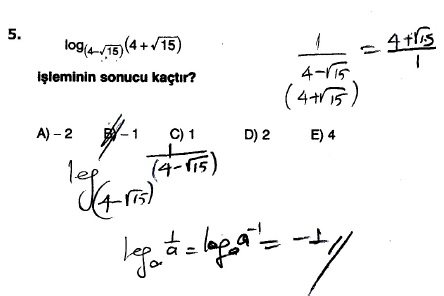 5. log(4-√15)(4+√15)
işleminin sonucu kaçtır?
1/(4-√15) = (4+√15)/1
(4+√15)
A) – 2 B) – 1 C) 1 D) 2 E) 4
log(4-√15) 1/(4-√15)
logₐ 1/a = logₐ a⁻¹ = -1//